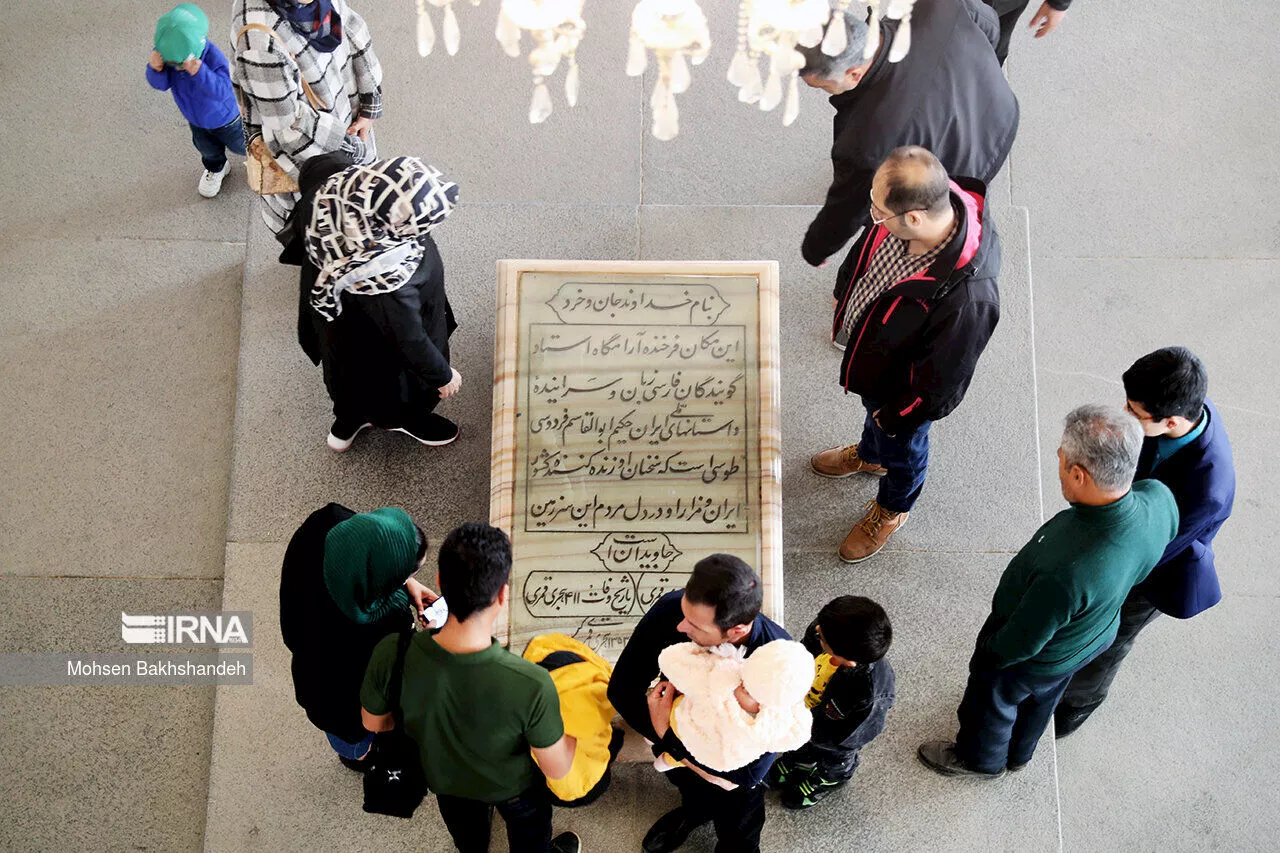 بنام خداوند جان و خرد
این مکان فرخنده آرامگاه استاد
گویندگان فارسی زبان و سراینده
داستانهای ملی ایران حکیم ابوالقاسم فردوسی
طوسی است که سخنان او زنده کننده کشور
ایران و مزار او در دل مردم این سرزمین
جاویدان است
تاریخ وفات ۴۱۱ هجری قمری
هجری قمری
IRNA
Mohsen Bakhshandeh